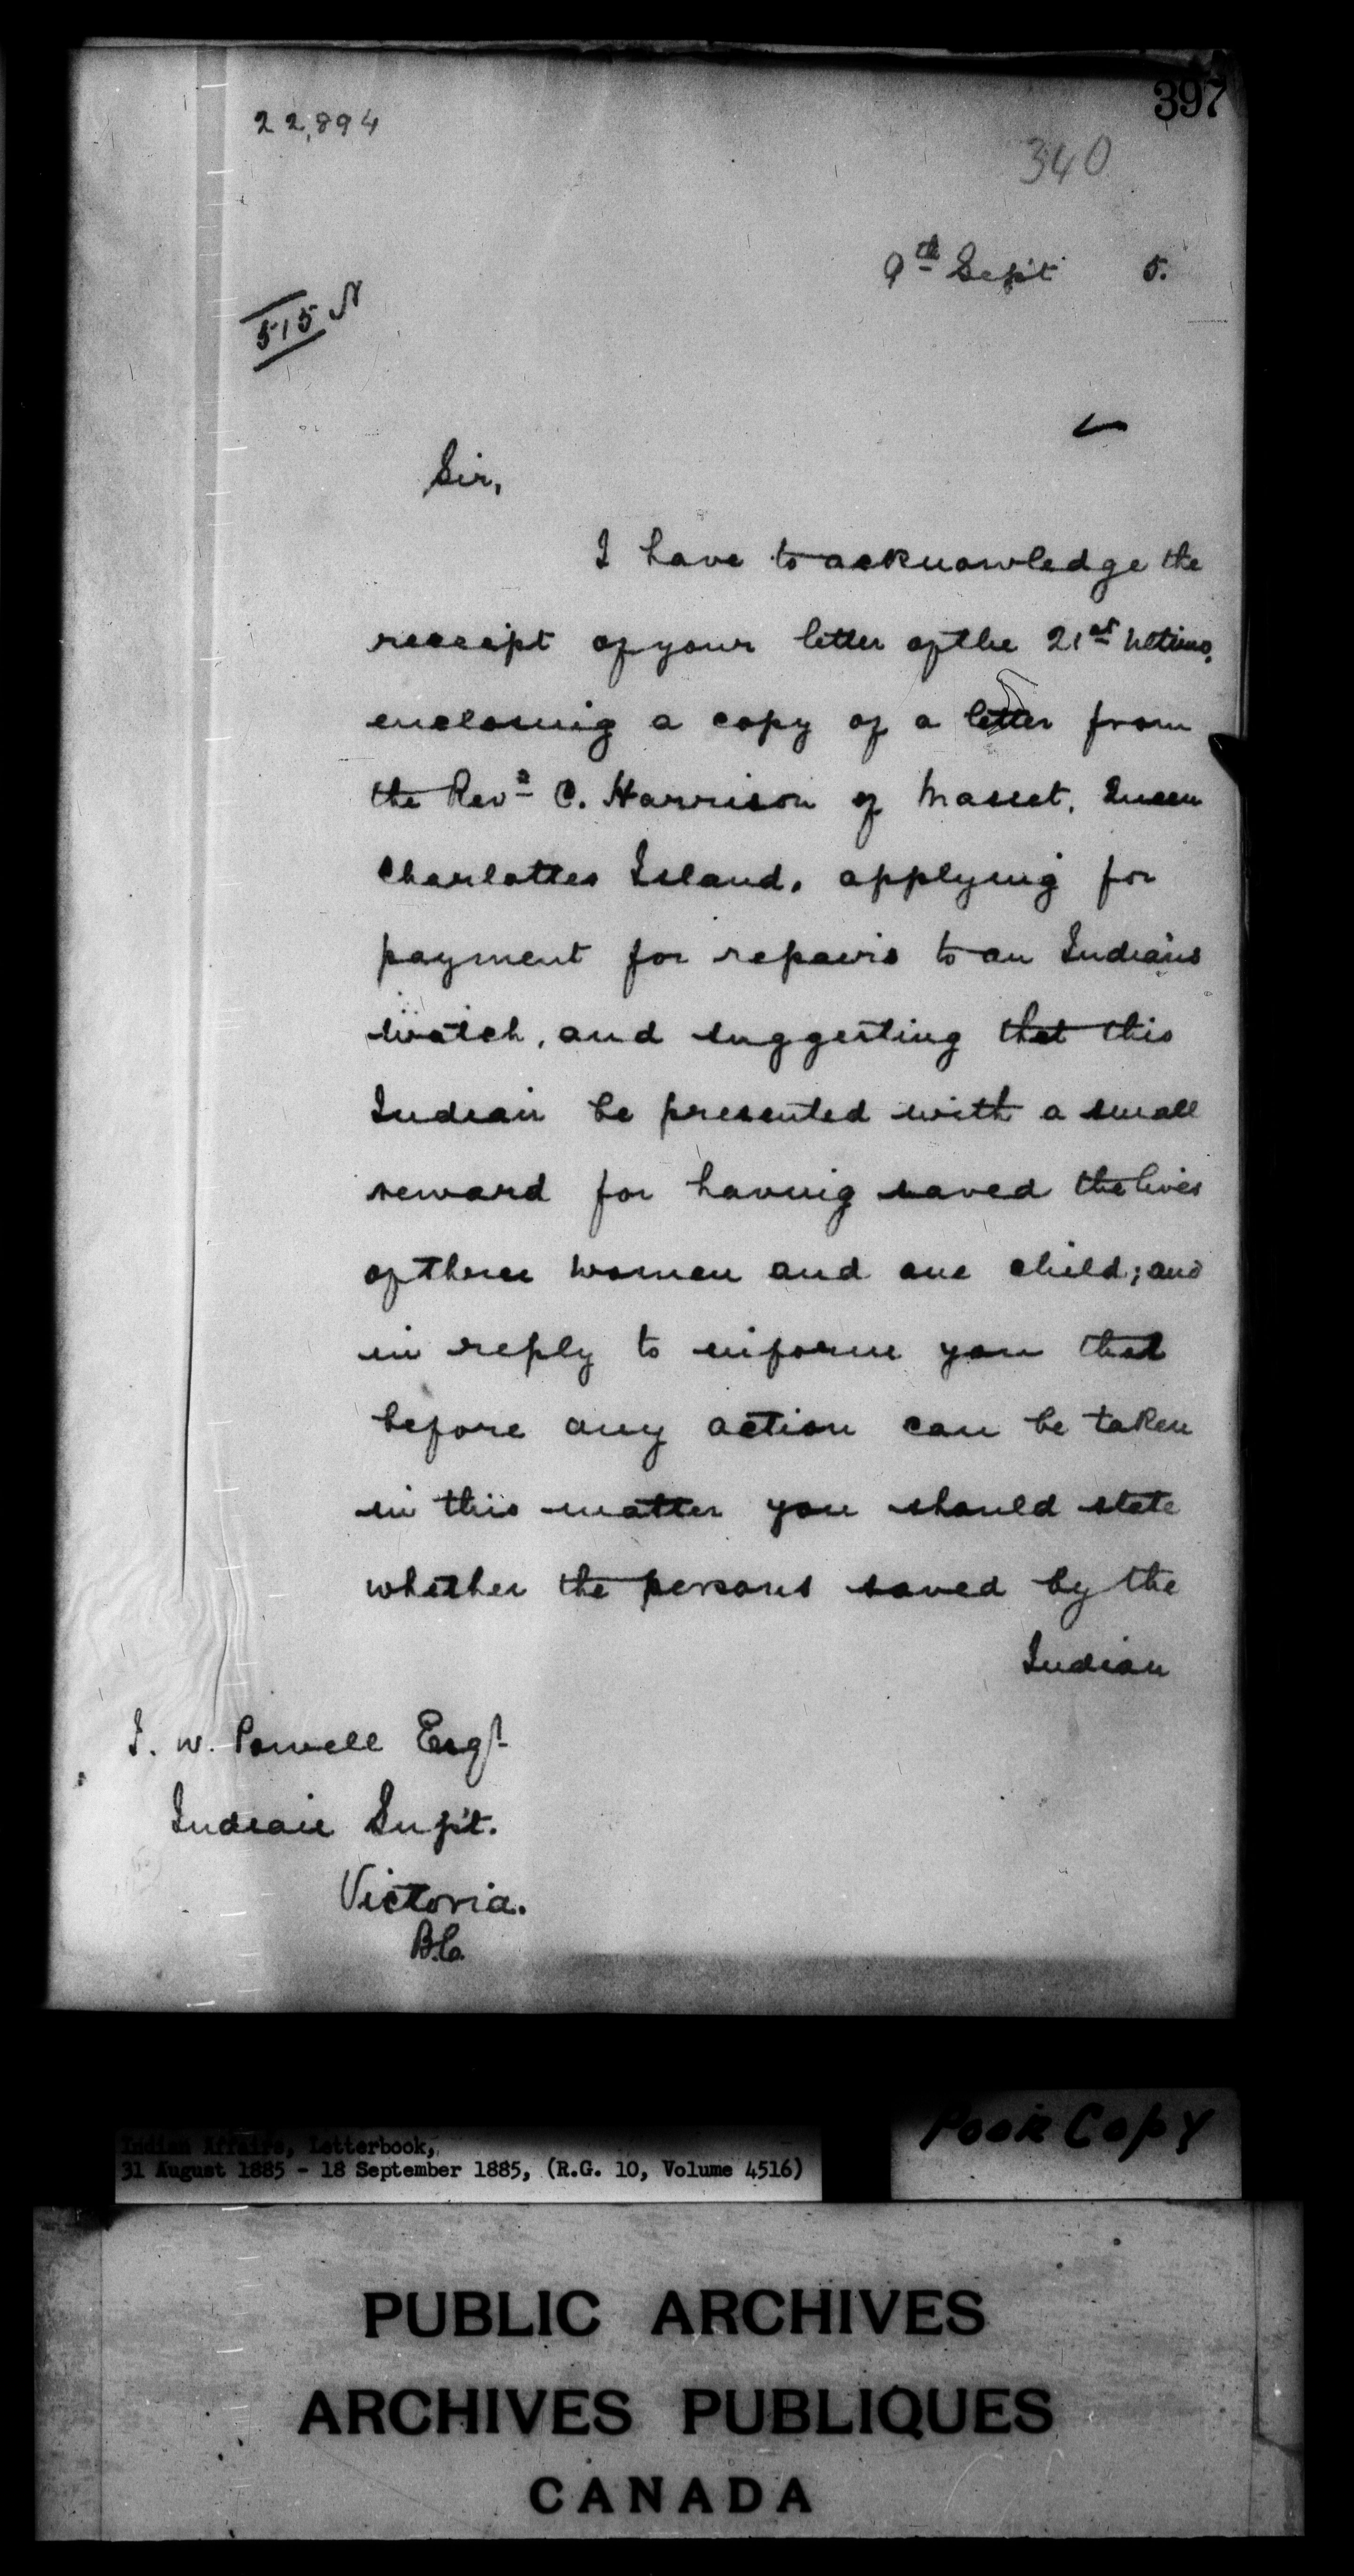 397
22,894
340
9th Sept 5.
515 N
Sir,
I have to acknowledge the
receipt of your letter of the 21st Ultimo,
enclosing a copy of a letter from
the Revd C. Harrison of Masset, Queen
Charlottes Island, applying for
payment for repairs to an Indian's
watch, and suggesting that this
Indian be presented with a small
reward for having saved the lives
of three women and one child; and
in reply to inform you that
before any action can be taken
in this matter you should state
whether the persons saved by the
Indian
I. W. Powell Esqr
Indian Supt.
Victoria.
B.C.
Poor Copy
Indian Affairs, Letterbook,
31 August 1885 - 18 September 1885, (R.G. 10, Volume 4516)
PUBLIC ARCHIVES
ARCHIVES PUBLIQUES
CANADA